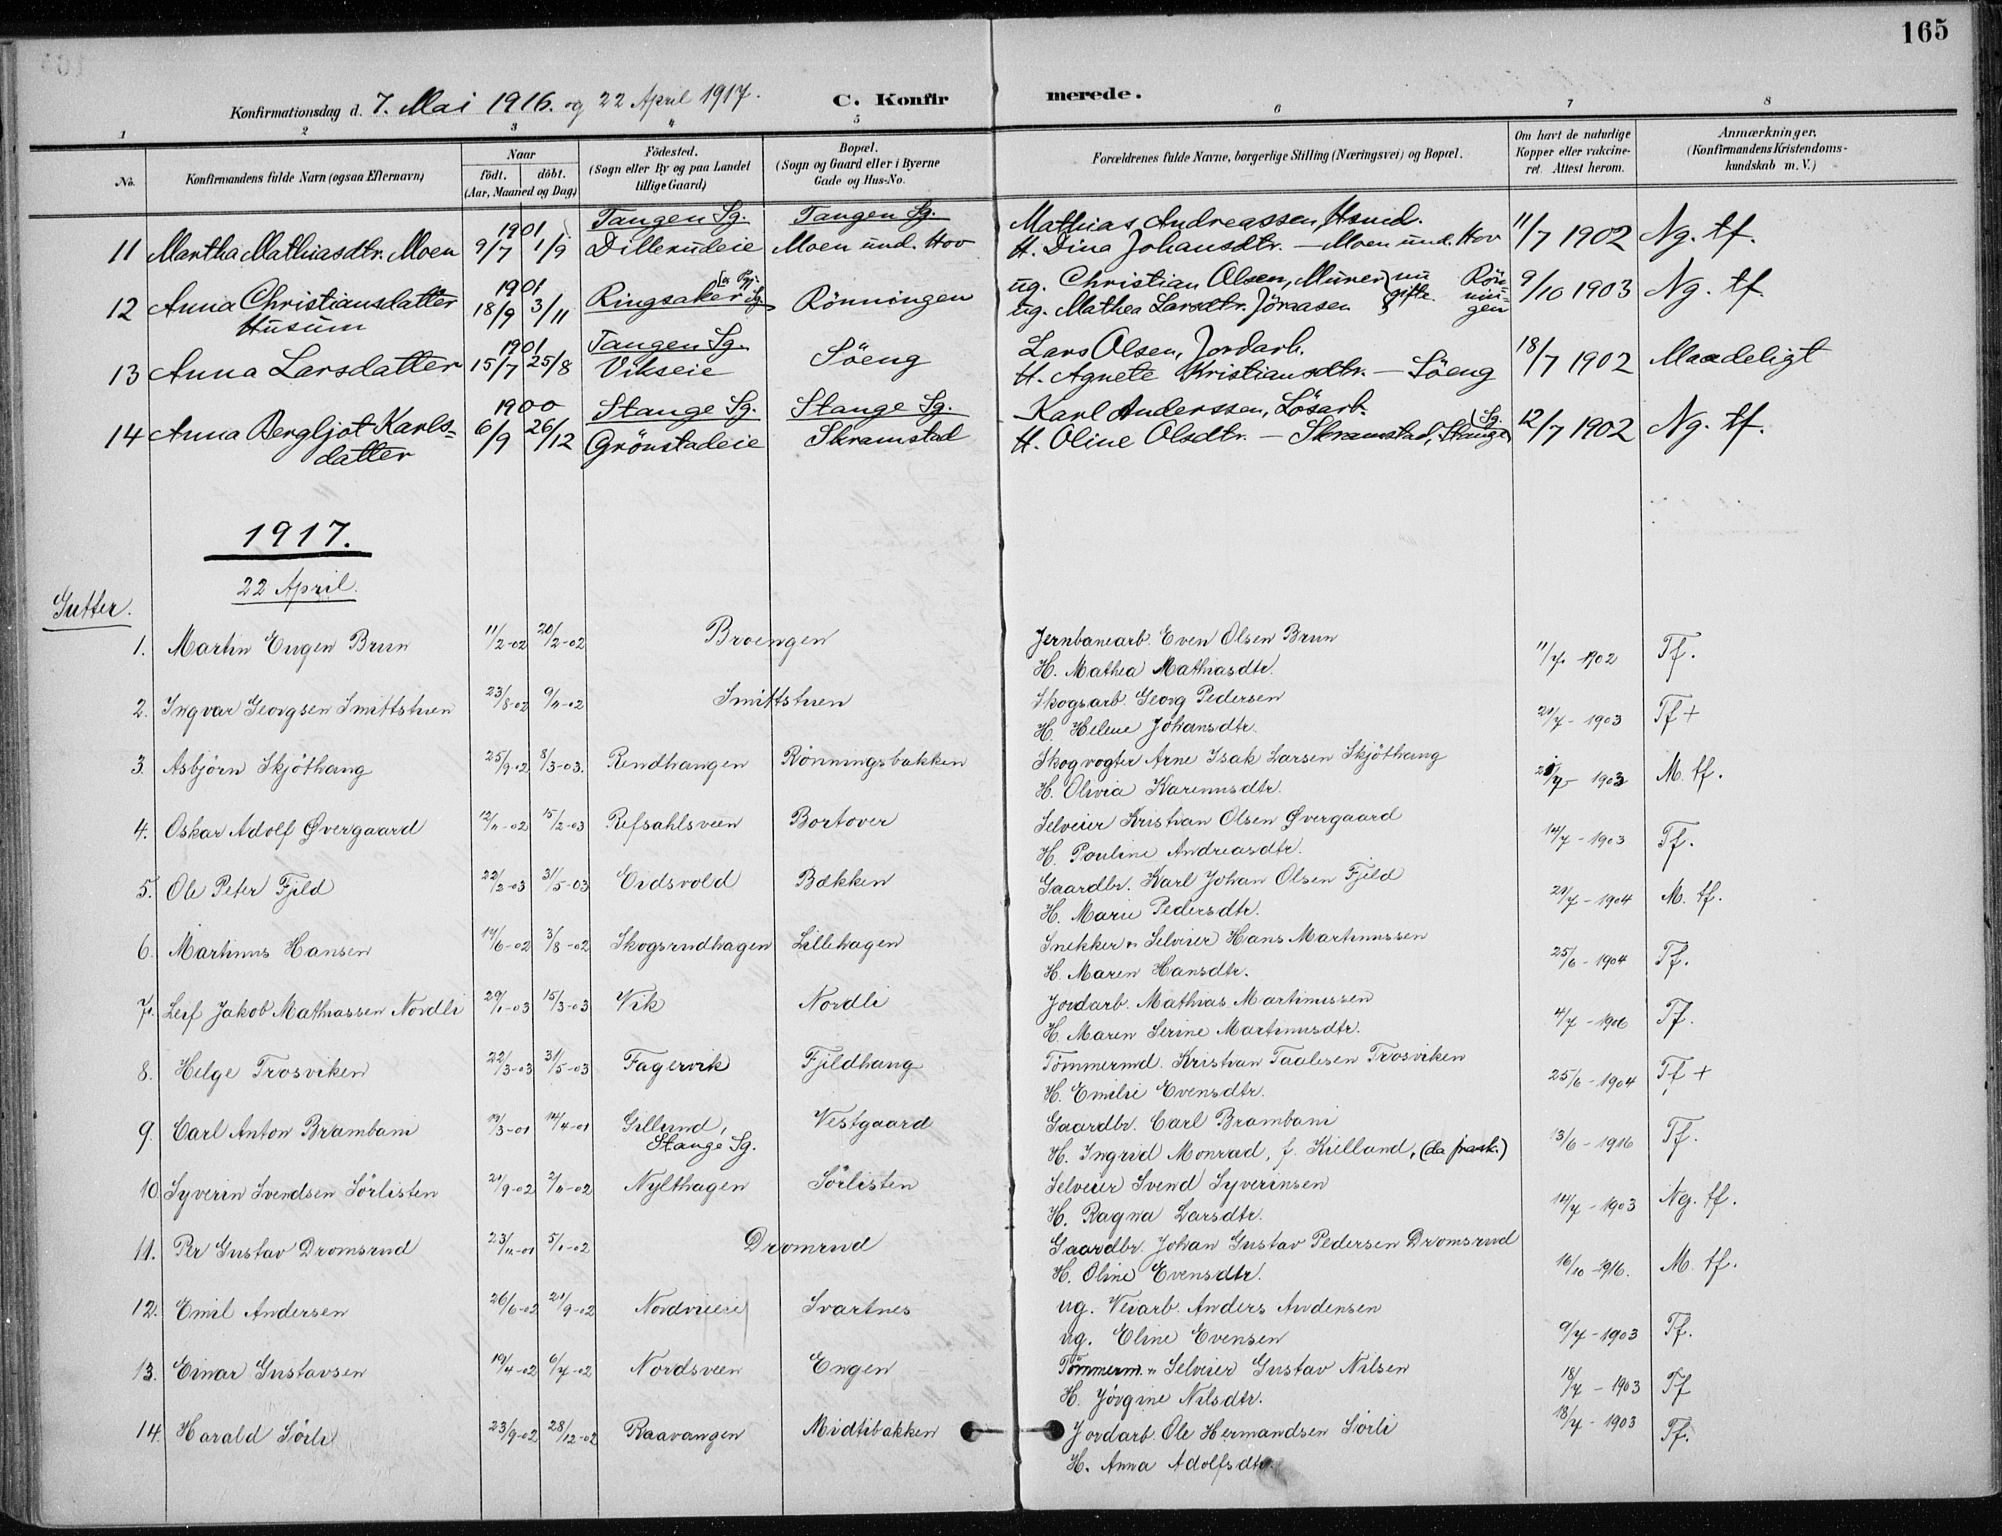 165
Konfirmationsdag d. 7. Mai 1916. og 22 April 1917. C. Konfirmerede.
1 2 3 4 5 6 7 8
No. Konfirmandens fulde Navn (ogsaa Efternavn) Naar födt. döbt. (Aar, Maaned og Dag) Födested. (Sogn eller By og paa Landet tillige Gaard) Bopæl. (Sogn og Gaard eller i Byerne Gade og Hus-No. Forældrenes fulde Navne, borgerlige Stilling (Næringsvei) og Bopæl. Om havt de naturlige Kopper eller vakcineret. Attest herom. Anmærkninger, (Konfirmandens Kristendomskundskab m. V.)
1901 Tangen Sg. Tangen Sg. Mathias Andreassen, Hsmd.
11 Martha Mathiasdtr. Moen 9/7 1/9 Dillerudeie Moen und. Hov H. Dina Johansdtr. — Moen und. Hov 11/7 1902 Ng. tf.
1901 ug. Christian Olsen, Murer nu Rön-
12 Anna Christiansdatter 18/9 3/11 Ringsaker Sg. Rönningen ug. Mathea Larsdtr. Jöraasen gifte nin- gen 9/10 1903 Ng. tf.
Husum
1901 Tangen Sg. Lars Olsen, Jordarb.
13 Anna Larsdatter 15/7 25/8 Vikseie Söeng H. Agnete Kristiansdtr. — Söeng 18/7 1902 Maadeligt
1900 Stange Sg. Stange Sg. Karl Anderssen, Lösarb.
14 Anna Bergljot Karls= 6/9 26/12 Grönstadeie Skramstad H. Oline Olsdtr. — Skramstad, Stange Sg. 12/7 1902 Ng. tf.
datter
1917.
22 April.
Gutter.
1. Martin Eugen Brun 11/2-02 20/2-02 Broengen Jernbanearb. Even Olsen Brun
H. Mathea Mathiasdtr. 11/7. 1902 Tf.
2. Ingvar Georgsen Smittstuen 23/8-02 9/11-02 Smittstuen Skogsarb. Georg Pedersen
H. Helene Johansdtr. 20/7- 1903 Tf +
3. Asbjörn Skjöthaug 25/9-02 8/3-03. Rendhaugen Rönningsbakken Skogvogter Arne Isak Larsen Skjöthaug
H. Olivia Karenusdtr. 1903 M. tf.
4. Oskar Adolf Øvergaard 12/11-02 15/2-03 Refsahlsveen Bortover Selveier Kristian Olsen Øvergaard
H. Pauline Andreasdtr. 14/7-1903 Tf.
5. Ole Peter Fjeld 22/2-03 31/5-03 Eidsvold Bakken Gaardbr. Karl Johan Olsen Fjeld
H. Marie Pedersdtr. 20/7-1904 M. tf.
6. Martinus Hansen 14/6-02 3/8-02 Skogsrudhagen Lillehagen Snekker o. Selveier Hans Martinussen
H. Maren Hansdtr. 25/6-1904 Tf.
7. Leif Jakob Mathiassen Nordli 29/1-03 15/3-03 Vik Nordli Jordarb. Mathias Martinussen
H. Maren Serine Martinusdtr. 4/7-1906 Tf.
8. Helge Trosviken 22/3-03 31/5-03 Fagervik Fjeldhaug Tömmermd. Kristian Taalesen Trosviken
H. Emilie Evensdtr. 25/6-1904 Tf +
9. Carl Anton Brambani 19/3-01 14/4-01 Gillund, Vestgaard Gaardbr. Carl Brambani
Stange Sg. H. Ingrid Monrad, f. Kielland, 13/6-1916 Tf.
10. Syverin Svendsen Sörlisten 21/9-02 2/11-02 Nylthagen Sörlisten Selveier Svend Syverinsen
H. Ragna Larsdtr. 14/7-1903 Ng. tf.
11. Per Gustav Dromsrud 23/11-01 5/1-02 Dromrud Gaardbr. Johan Gustav Pedersen Dromsrud
H. Oline Evensdtr. 16/10 1916. M. tf.
12. Emil Andersen 26/6-02 21/9-02 Nordvieie Svartnes ug. Veiarb. Anders Andersen
ug. Eline Evensen 9/7-1903 Tf.
13. Einar Gustavsen 19/4-02 6/7-02 Nordsveen Engen Tömmerm. o. Selveier Gustav Nilsen
H. Jörgine Nilsdtr. 18/7-1903 Tf
14. Harald Sörli 23/9-02 28/12-02 Raavangen Midtibakken Jordarb. Ole Hermandsen Sörli 18/7-1903
H. Anna Adolfsdtr. Tf.